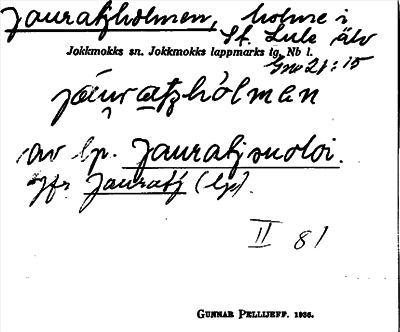 Jauratjholmen, holme i
St. Lule älv
Jokkmokks sn. Jokkmokks lappmarks tg. Nb l.
Gno 21:15
jáuratʒhólmen
av lp. Jauratjsuoloi.
Jfr Jauratj (lp).
II 81
GUNNAR PELLIJEFF. 1936.